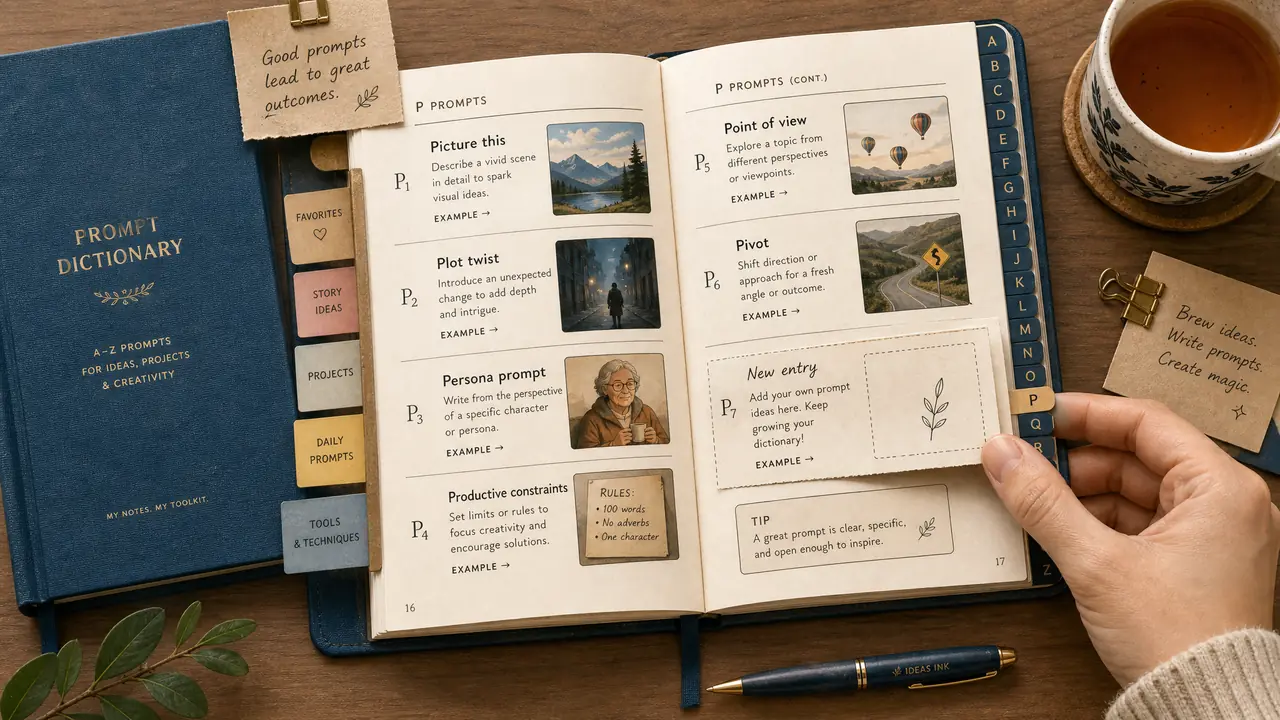 Good prompts
lead to great
outcomes.
PROMPT
DICTIONARY
A–Z PROMPTS
FOR IDEAS, PROJECTS
& CREATIVITY
MY NOTES. MY TOOLKIT.
FAVORITES
STORY
IDEAS
PROJECTS
DAILY
PROMPTS
TOOLS
& TECHNIQUES
P PROMPTS
P1
Picture this
Describe a vivid scene
in detail to spark
visual ideas.
EXAMPLE →
P2
Plot twist
Introduce an unexpected
change to add depth
and intrigue.
EXAMPLE →
P3
Persona prompt
Write from the perspective
of a specific character
or persona.
EXAMPLE →
P4
Productive constraints
Set limits or rules to
focus creativity and
encourage solutions.
EXAMPLE →
RULES:
• 100 words
• No adverbs
• One character
16
P PROMPTS (CONT.)
P5
Point of view
Explore a topic from
different perspectives
or viewpoints.
EXAMPLE →
P6
Pivot
Shift direction or
approach for a fresh
angle or outcome.
EXAMPLE →
P7
New entry
Add your own prompt
ideas here. Keep
growing your
dictionary!
EXAMPLE →
TIP
A great prompt is clear, specific,
and open enough to inspire.
17
A
B
C
D
E
F
G
H
I
J
K
L
M
N
O
P
Q
R
Z
Brew ideas.
Write prompts.
Create magic.
IDEAS INK